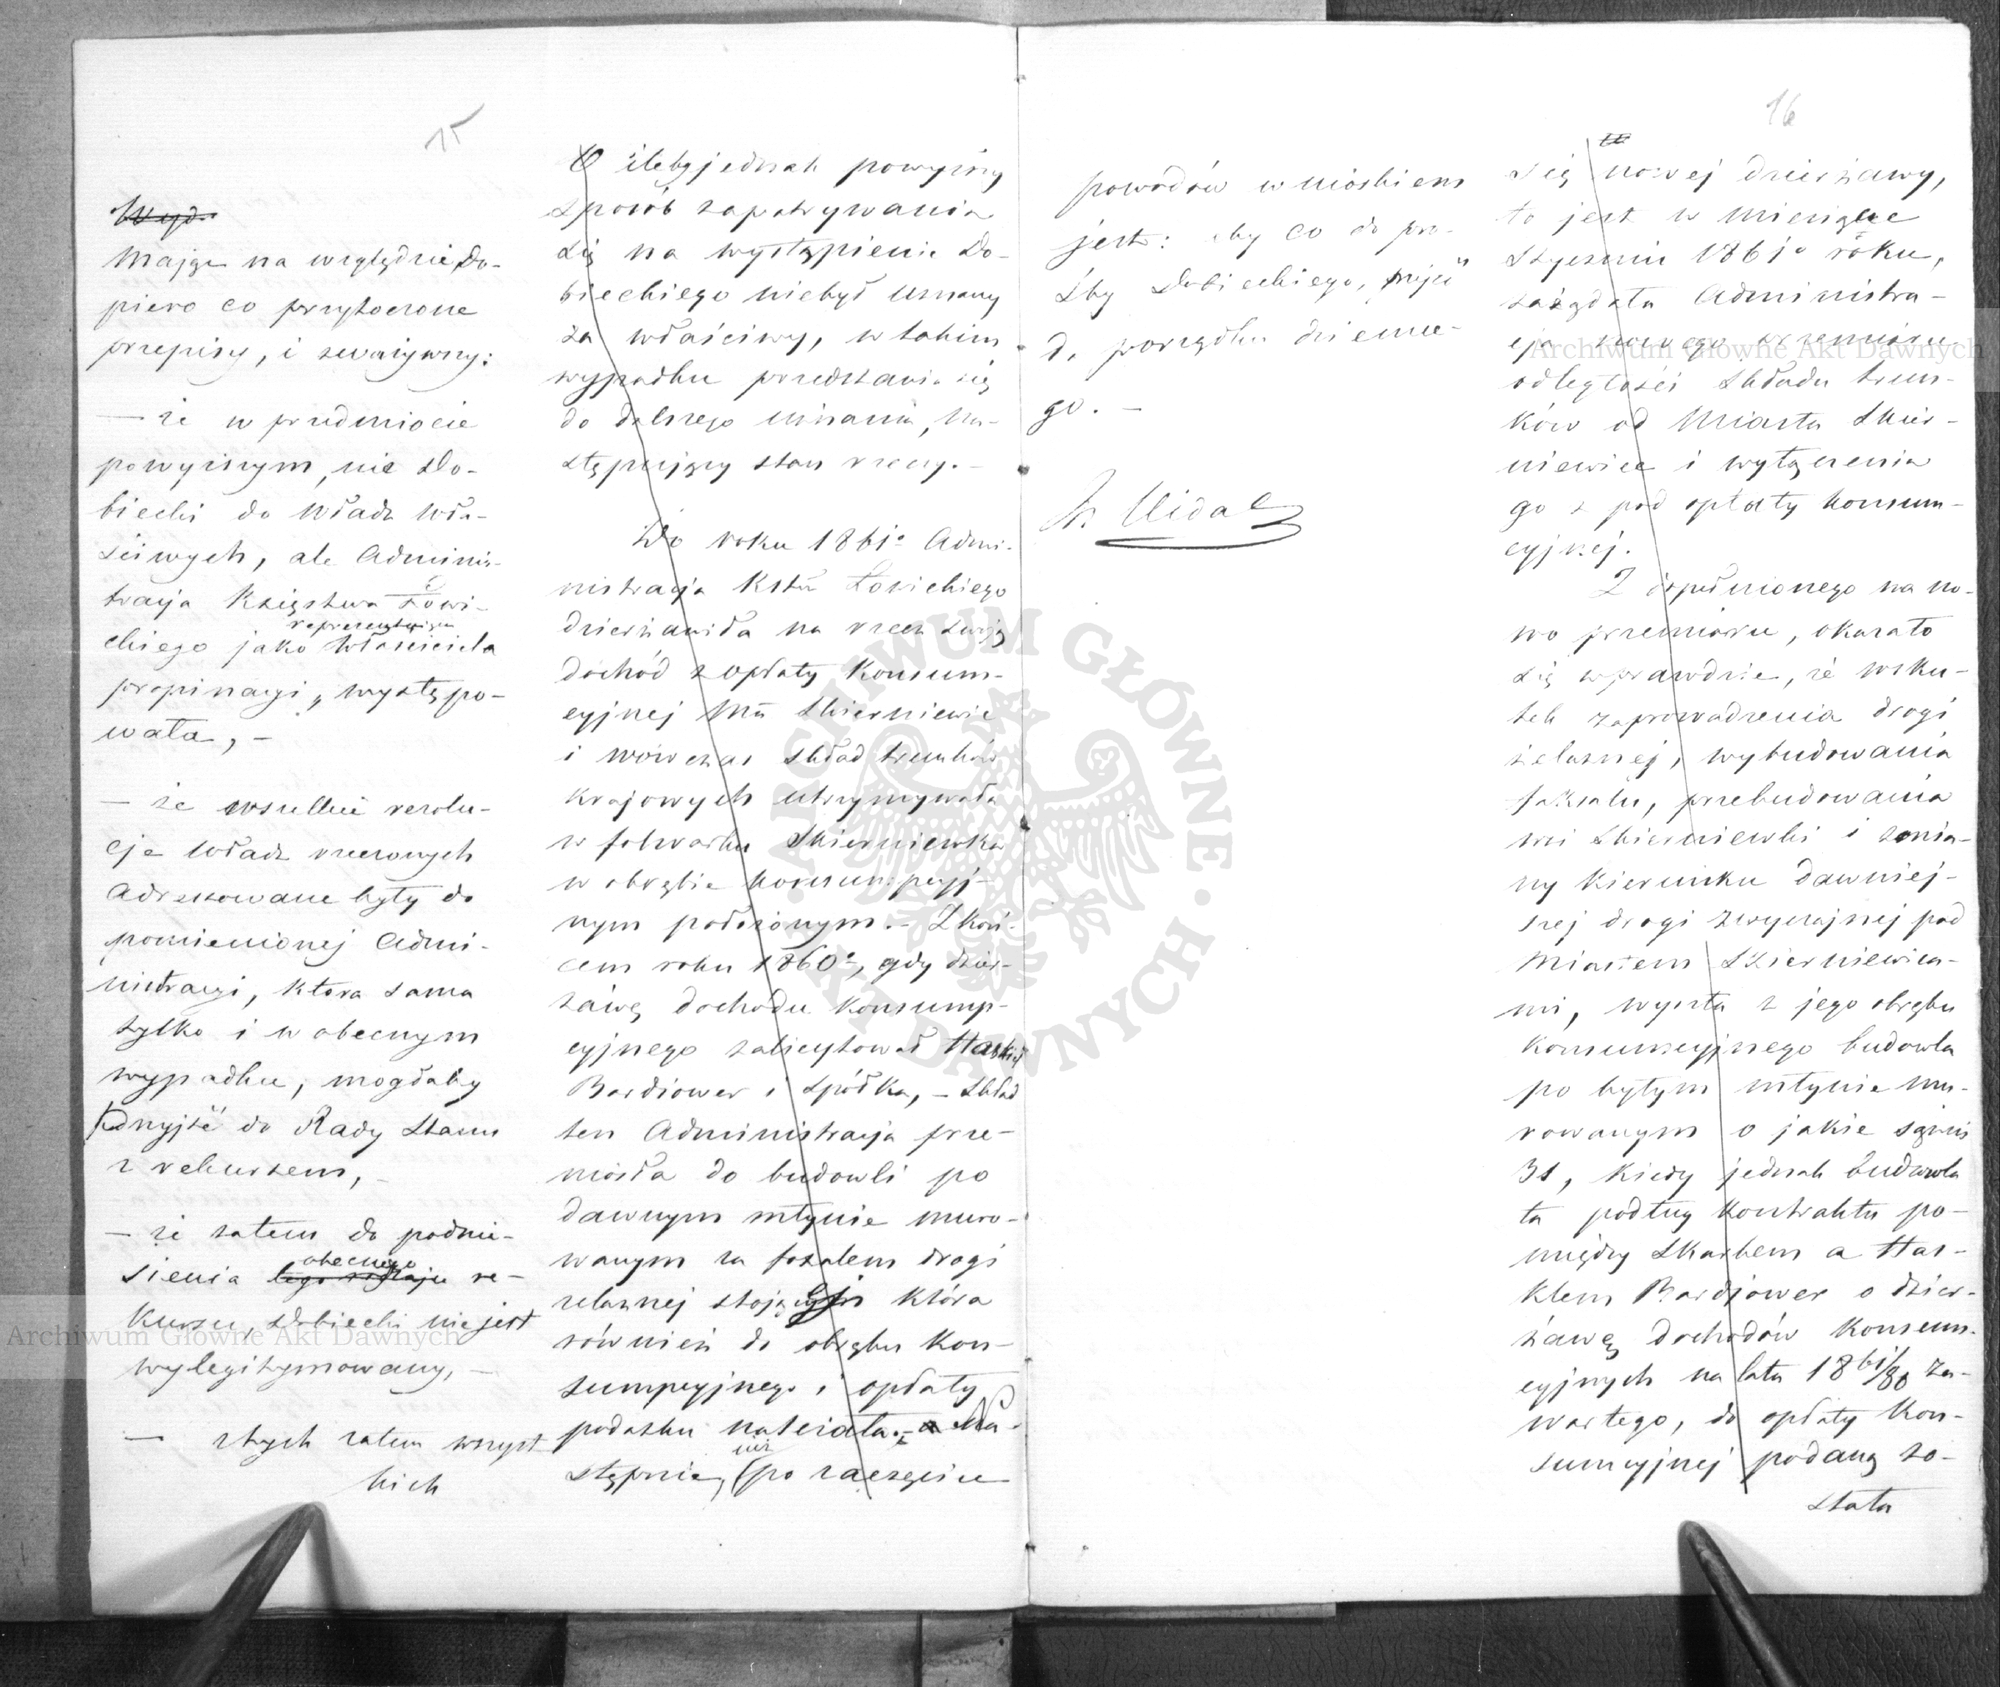 15
Wyd.
Mając na względzie do-
piero co przytoczone
przepisy, i zważywszy:
— że w przedmiocie
powyższym, nie Do-
biecki do Władz wła-
ściwych, ale Adminis-
tracja Księstwa Łowi-
reprezentująca
ckiego jako właściciela
propinacyi, występo-
wała, —
— że wszelkie rezolu-
cje Władz rzeczonych
adresowane były do
pomienionej Admi-
nistracyi, która sama
tylko i w obecnym
wypadku, mogłaby
przyjść do Rady Stanu
z rekursem, —
— że zatem do podnie-
obecnego
sienia tego rodzaju re-
kursu, Dobiecki nie jest
wylegitymowany, —
— z tych zatem wszyst
kich
O ileby jednak powyższy
sposób zapatrywania
się na wystąpienie Do-
bieckiego niebył uznany
za właściwy, w takim
wypadku przedstawia się
do dalszego uznania, na-
stępujący stan rzeczy. —
Do roku 1861o Admi-
nistracja Kstwa Łowickiego
dzierżawiła na rzecz swoją
dochód z opłaty konsum-
cyjnej Mta Skierniewic
i wówczas skład trunków
krajowych utrzymywała
w folwarku Skierniewka
w obrębie konsumpcyj-
nym położonym. — Z koń-
cem roku 1860o, gdy dzier-
żawę dochodu konsump-
cyjnego zalicytował Haskiel
Bardiower i Spółka, — skład
ten Administracja prze-
niosła do budowli po
dawnym młynie muro-
wanym za foxalem drogi
żelaznej stojącej która
również do obrębu kon-
sumpcyjnego i opłaty
podatku należała. — a Na-
stępnie, już (po zaczęciu
16
powodów wnioskiem
jest: aby co do pro-
śby Dobieckiego, przejść
d. porządku dzienne-
go. —
Vidal
się nowej dzierżawy,
to jest w miesiące
Styczniu 1861o roku,
zażądała Administra-
cja nowego przemiaru
odległości składu trun-
ków od Miasta Skier-
niewice i wyłączenia
go z pod opłaty konsum-
cyjnej.
Z dopełnionego na no-
wo przemiaru, okazało
się wprawdzie, że wsku-
tek zaprowadzenia drogi
żelaznej, wybudowania
foksalu, przebudowania
wsi Skierniewki i zmia-
ny kierunku dawniej-
szej drogi zwyczajnej pod
Miastem Skierniewica-
mi, wyszła z jego obrębu
konsumcyjnego budowla
po byłym młynie mu-
rowanym o jakie sążni
31, kiedy jednak budowla
ta podług kontraktu po-
między Skarbem a Has-
klem Bardiower o dzier-
żawę dochodów konsum-
cyjnych na lata 1861/80 za-
wartego, do opłaty kon-
sumcyjnej podaną zo-
stała
Archiwum Główne Akt Dawnych
Archiwum Główne Akt Dawnych
ARCHIWUM GŁÓWNE · AKT DAWNYCH ·